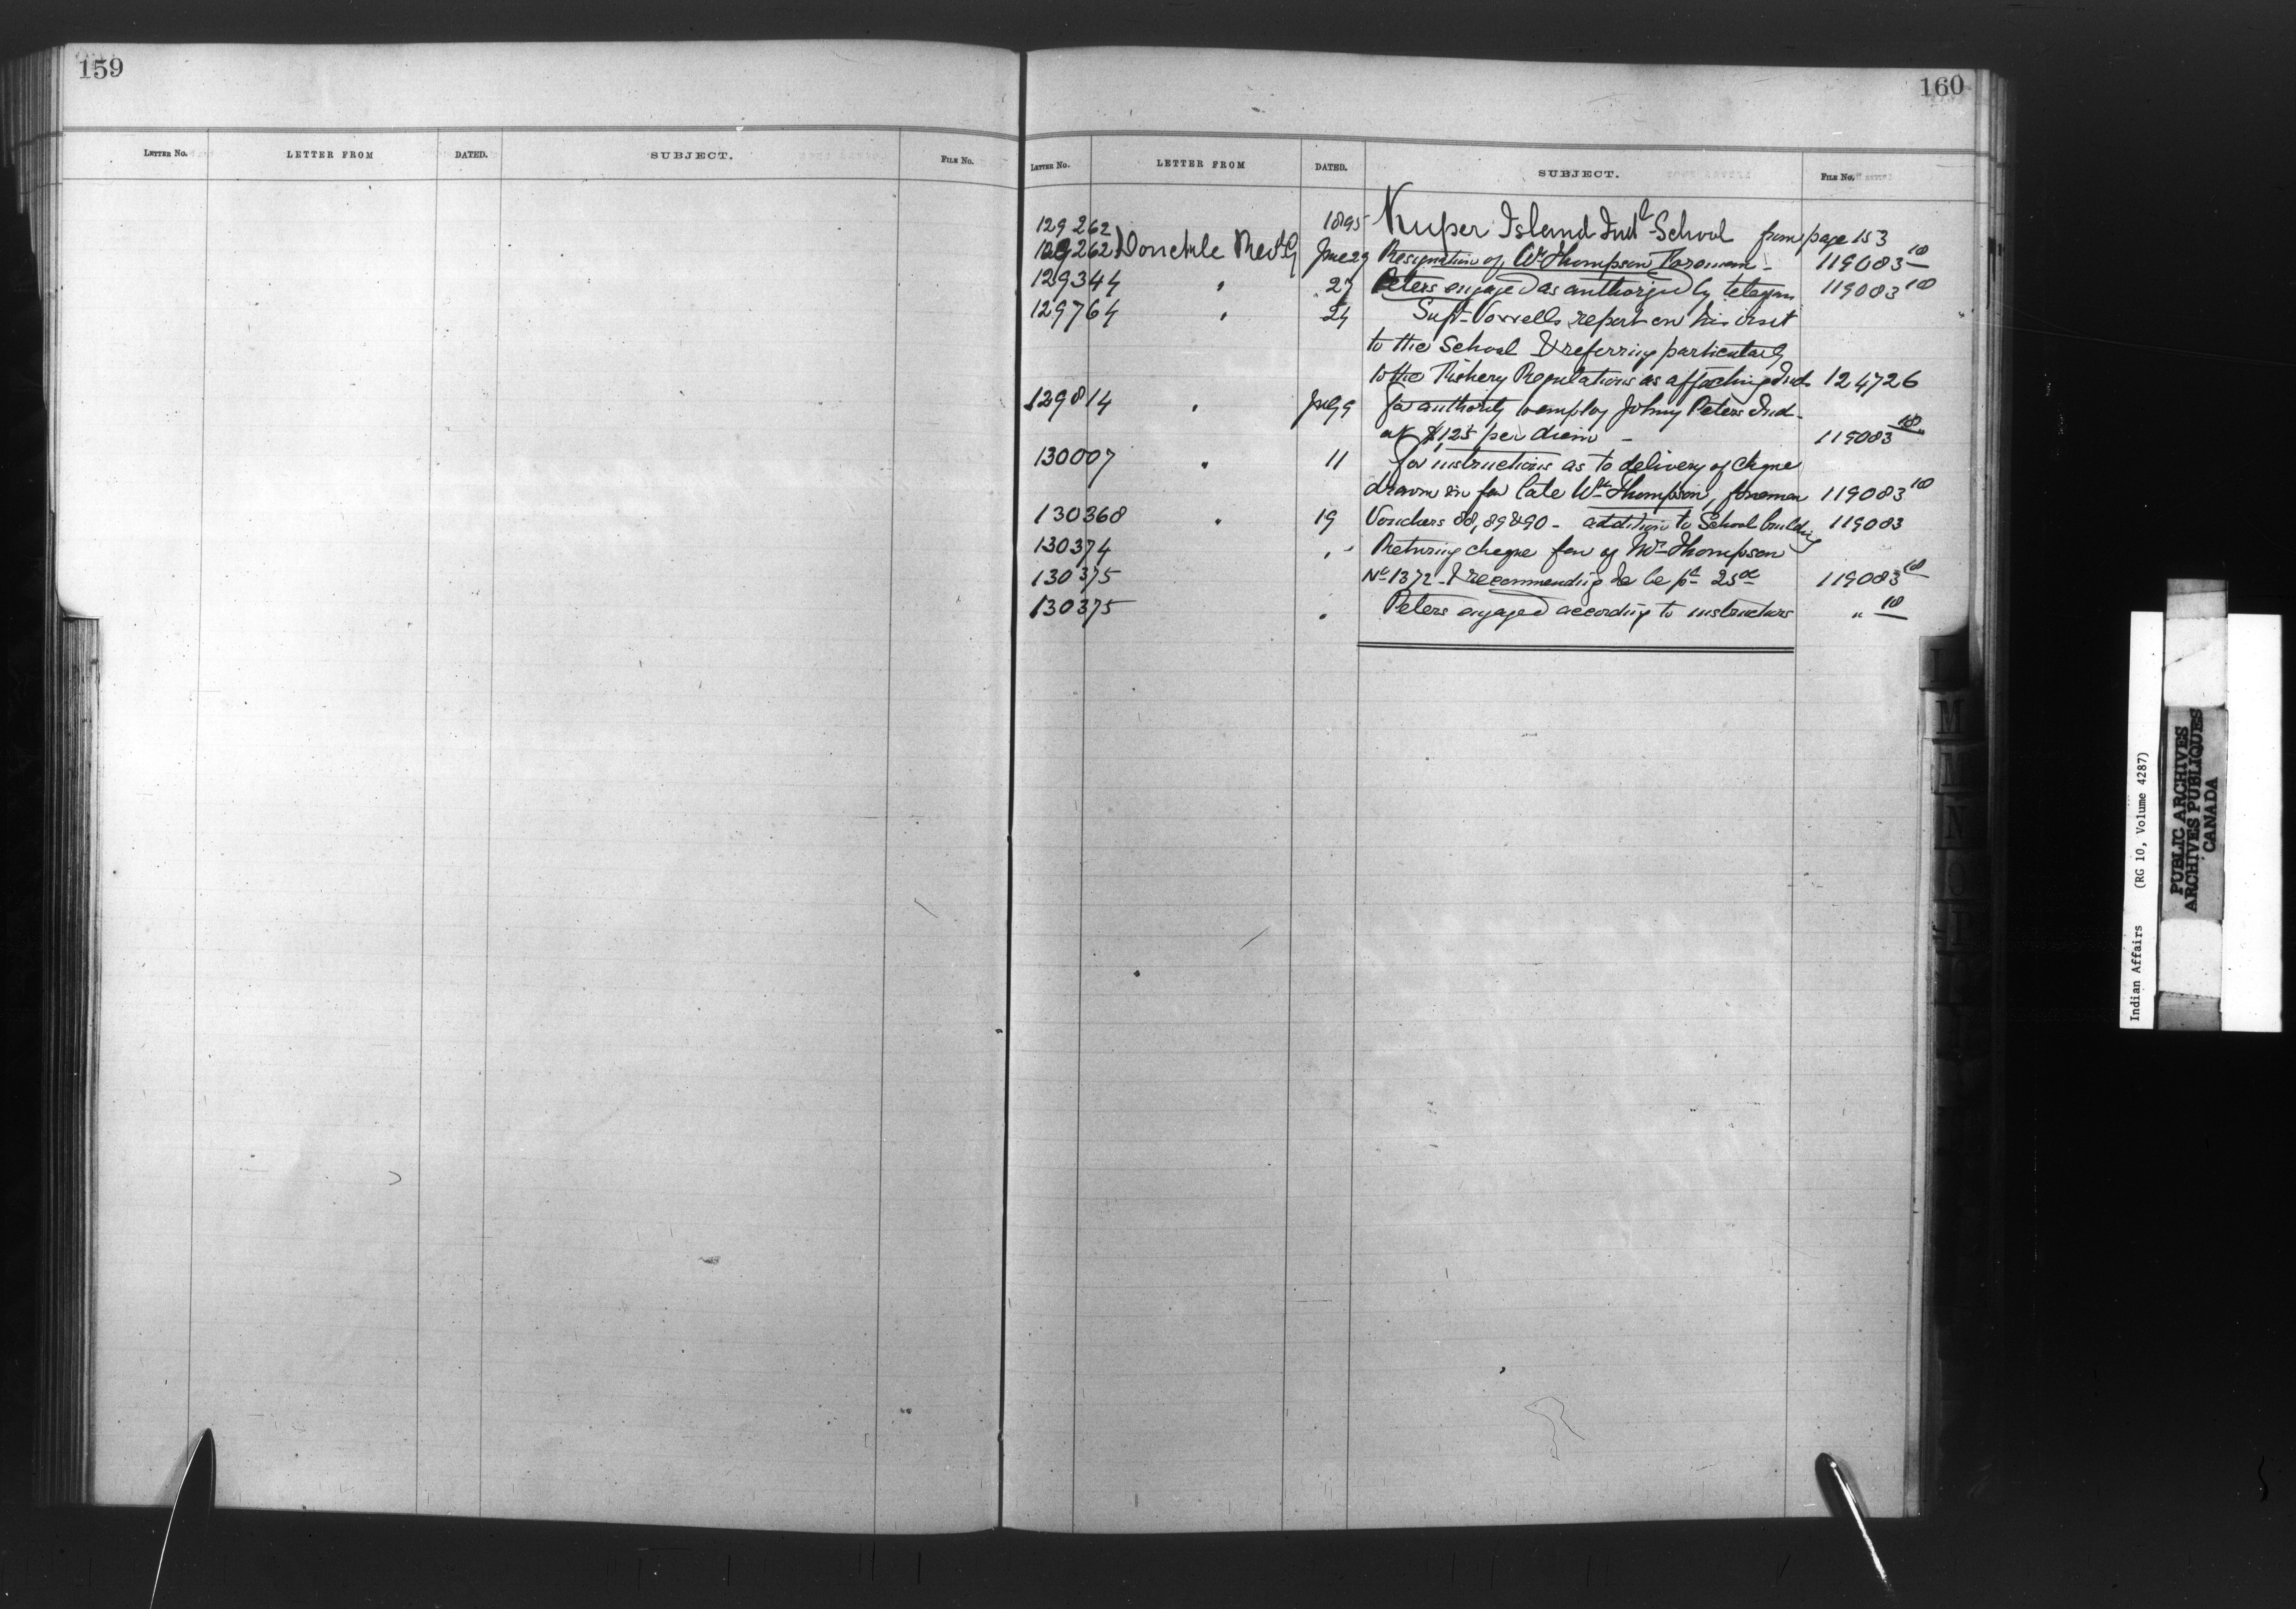 159
LETTER NO. LETTER FROM DATED. SUBJECT. FILE NO.
160
LETTER NO. LETTER FROM DATED. SUBJECT. FILE NO.
129262 1895 Kuper Island Indl School from page 153
129262 Donckele Rev G June 29 Resignation of Wm Thompson Foreman - 119083 10
129344 " 27 Peters engaged as authorized by telegram 119083 10
129764 " 24 Supt Vowells report on his visit
to the School & referring particularly
to the Fishery Regulations as affecting Inds 124726
129814 " July 9 for authority to employ Johny Peters Ind -
at $1,25 per diem - 119083 10
130007 " 11 for instructions as to delivery of cheque
drawn in fav late Wm Thompson, foreman 119083 10
130368 " 19 Vouchers 88, 89 & 90 - addition to School building 119083
130374 " Returing cheque fav of Mr Thompson
130375 No 1372 - & recommending be pd 25 119083 10
130375 " Peters engaged according to instructions " 10
Indian Affairs (RG 10, Volume 4287)
PUBLIC ARCHIVES
ARCHIVES PUBLIQUES
CANADA